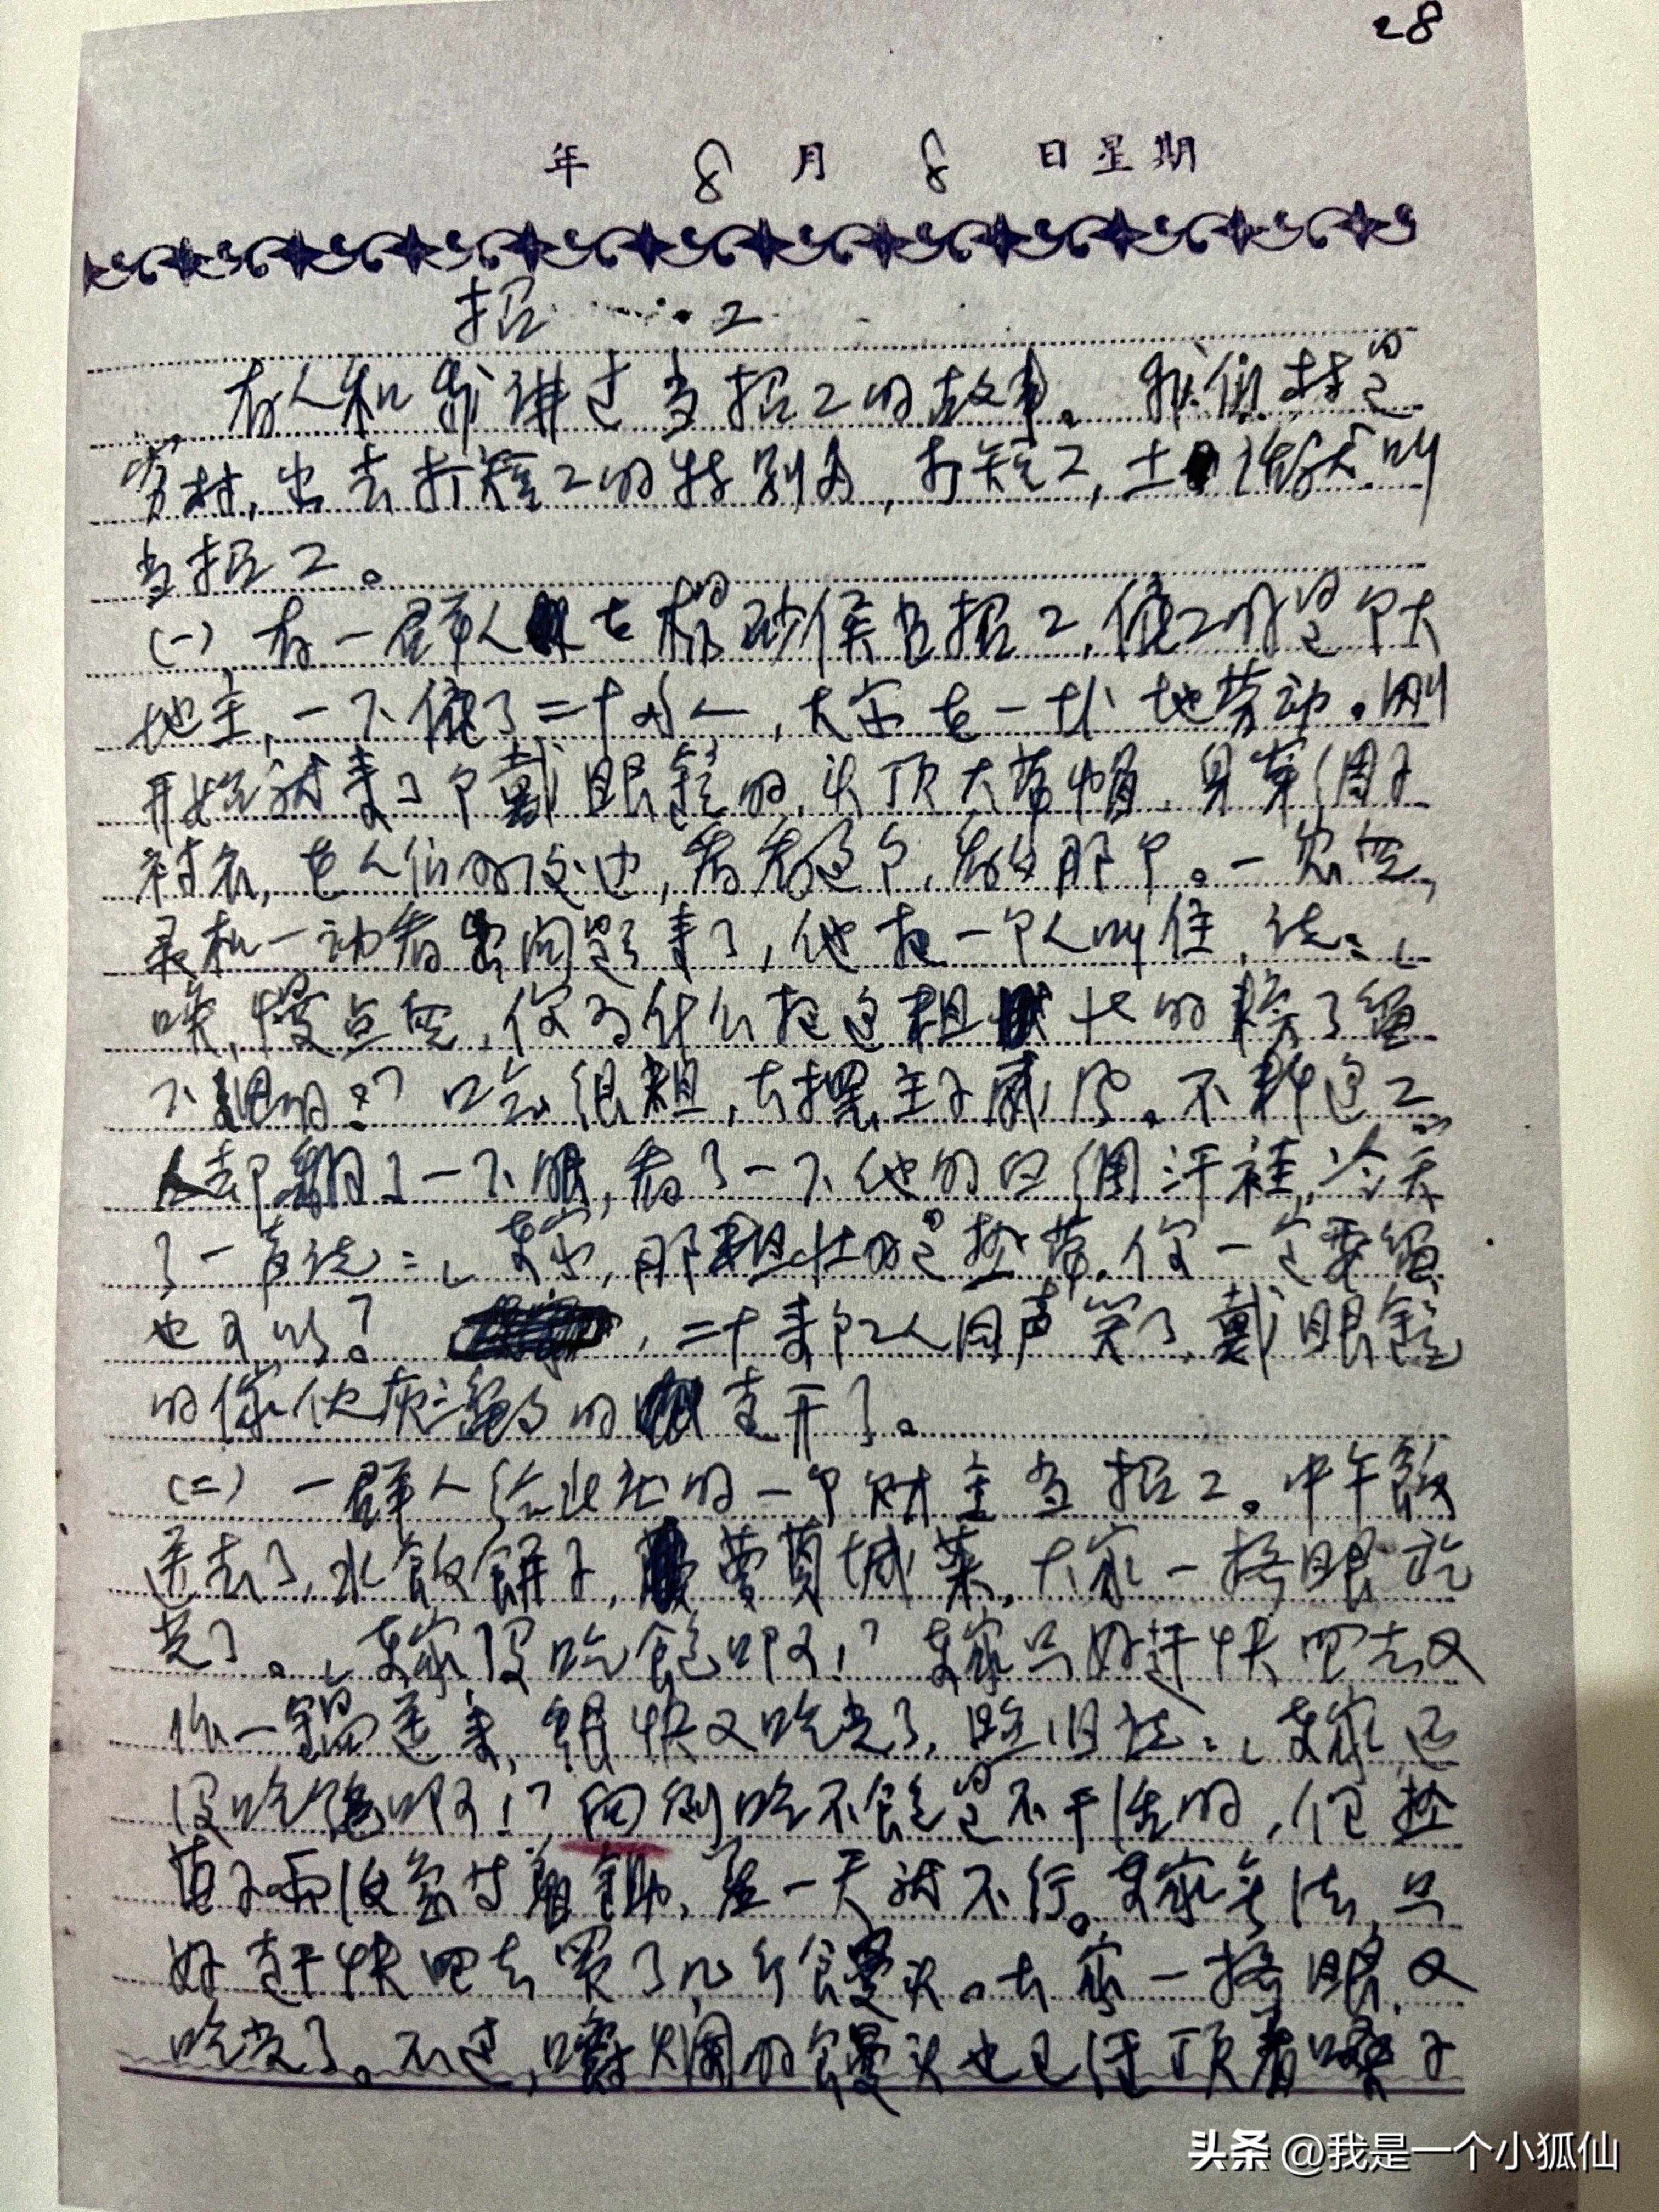 28
年 8 月 8 日星期
招 工
有人和我讲过当招工的故事。我们村是
穷村,出去打短工的特别多,打短工,土话就叫
当招工。
(一)有一群人在 当招工,催工的是个大
地主,一下催了二十多个,大家在一块地劳动。刚
开始就来了个戴眼镜的,头顶大草帽,身穿绸子
衬衣,在人们的后边,看看这个,看看那个。一发空,
灵机一动看出问题来了,他把一个人叫住,说:“
唉,慢点,你为什么把这粗壮的锄了留
下细的?”口气很粗,大摆主子威风。不料这工
人却翻了一下眼,看了一下他的白绸汗褂,冷笑
了一声说:“东家,那粗壮的是草,你一定要留
也可以?” ,二十来个工人同声笑了,戴眼镜
的家伙灰溜溜的走开了。
(二)一群人给此地的一个财主当招工。中午饭
送去了,水饭饼子,萝菔咸菜,大家一挤眼就吃
完了。“东家没吃饱呀!”东家只好赶快回去又
作一锅送来,很快又吃完了,照旧说:“东家还
没吃饱呀!”向例吃不饱是不干活的,但
一天就不行。东家无法,只
好赶快回去买了几斤馒头。大家一挤眼,又
吃完了。不过,嚼烂的馒头也已经顶着嗓子
头条 @我是一个小狐仙